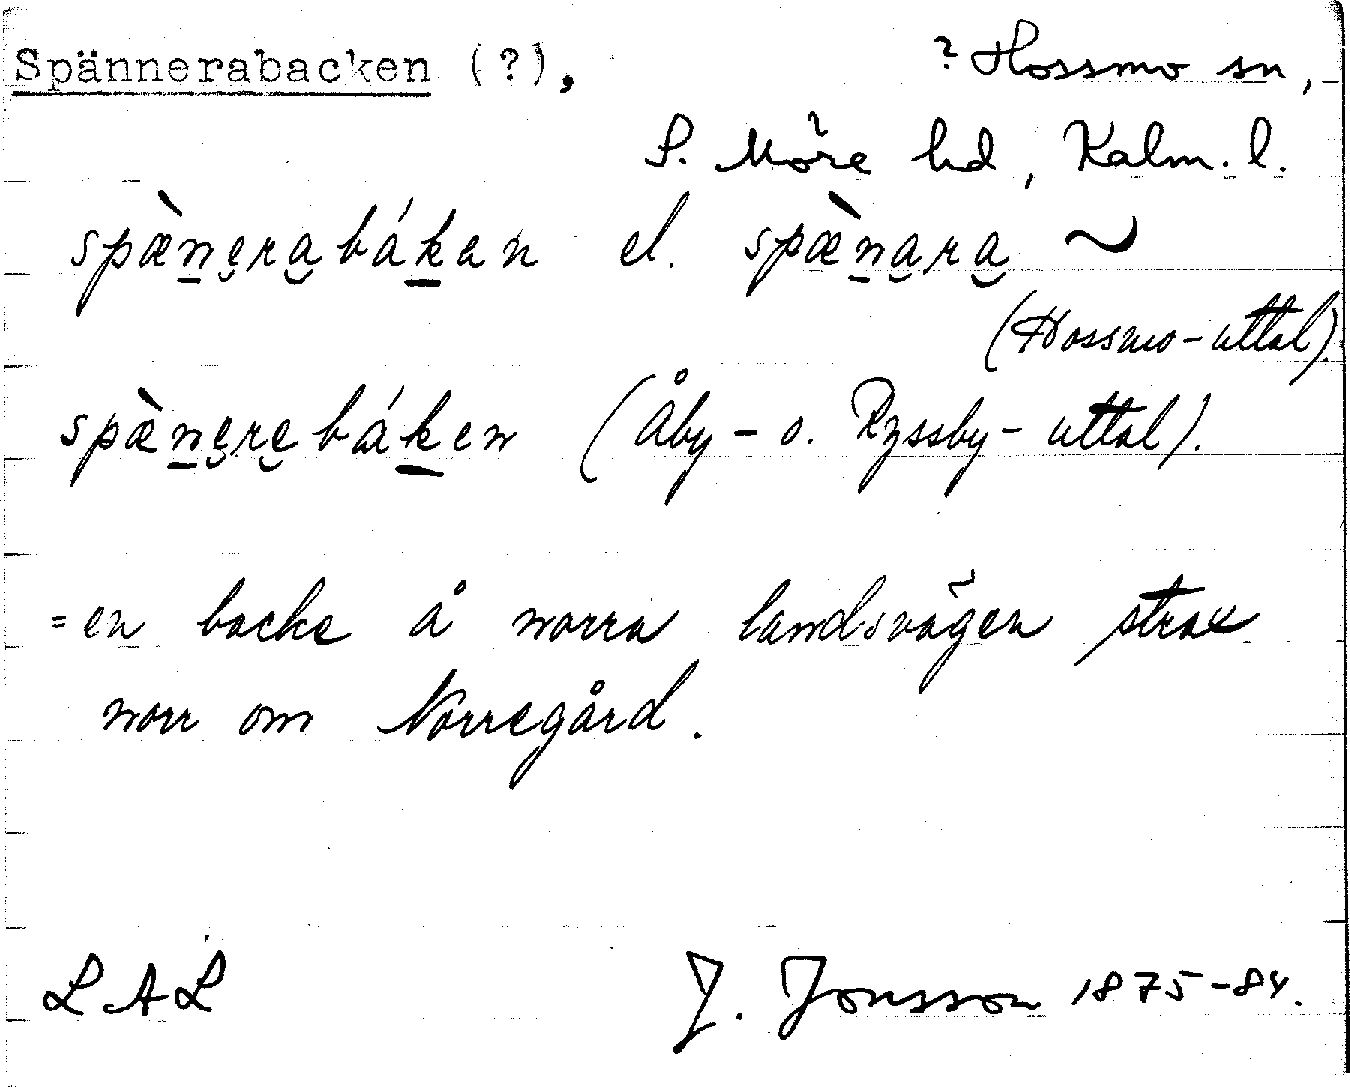 Spännerabacken (?), ? Hossmo sn,
S. Möre hd, Kalm. l.
spæ̀n̲e̮ra̮bák̲en el. spæ̀n̲a̮ra̮ ~
(Hossmo-uttal).
spæ̀n̲e̮re̮bák̲en (Åby- o. Ryssby-uttal).
= en backe å norra landsvägen strax
norr om Norregård.
LAL J. Jonsson 1875-84.